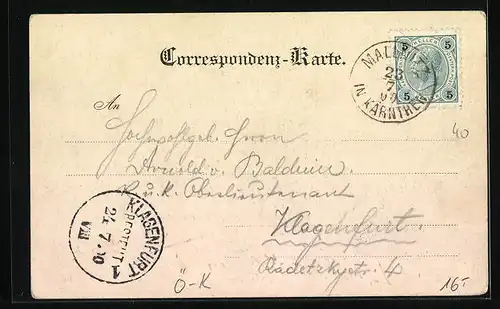 Correspondenz-Karte.
MALLNITZ
23
7
IN KÄRNTHEN
5 5
HELLER HELLER
5 5
40
An
Hochwohlgeb. Herrn
Arnold v. Baldauer
K. u. K. Oberlieutenant
Klagenfurt.
Radetzkystr. 4
KLAGENFURT 1
BESTELLT
24.7.00
VIII
Ö-K
16.-